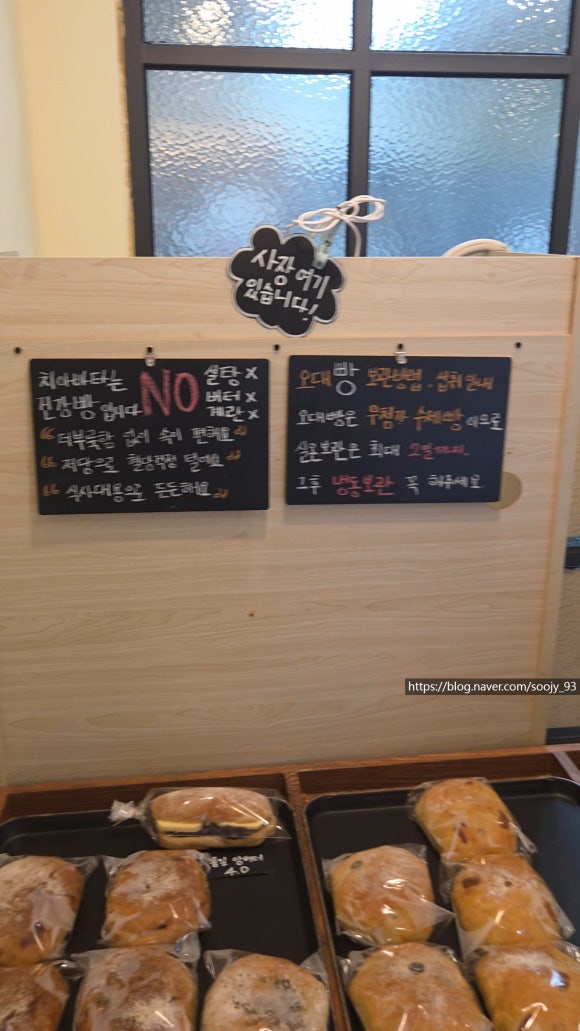 사장 여기
있습니다!
치아바타는
건강빵 입니다
NO
설탕 X
버터 X
계란 X
"더부룩함 없이 속이 편해요"
"저당으로 혈당걱정 덜해요"
"식사대용으로 든든해요"
오대빵 보관방법, 섭취 안내
오대빵은 무첨가 수제빵 이므로
실온보관은 최대 2일까지.
그후 냉동보관 꼭 해주세요
앙버터
4.0
https://blog.naver.com/soojy_93